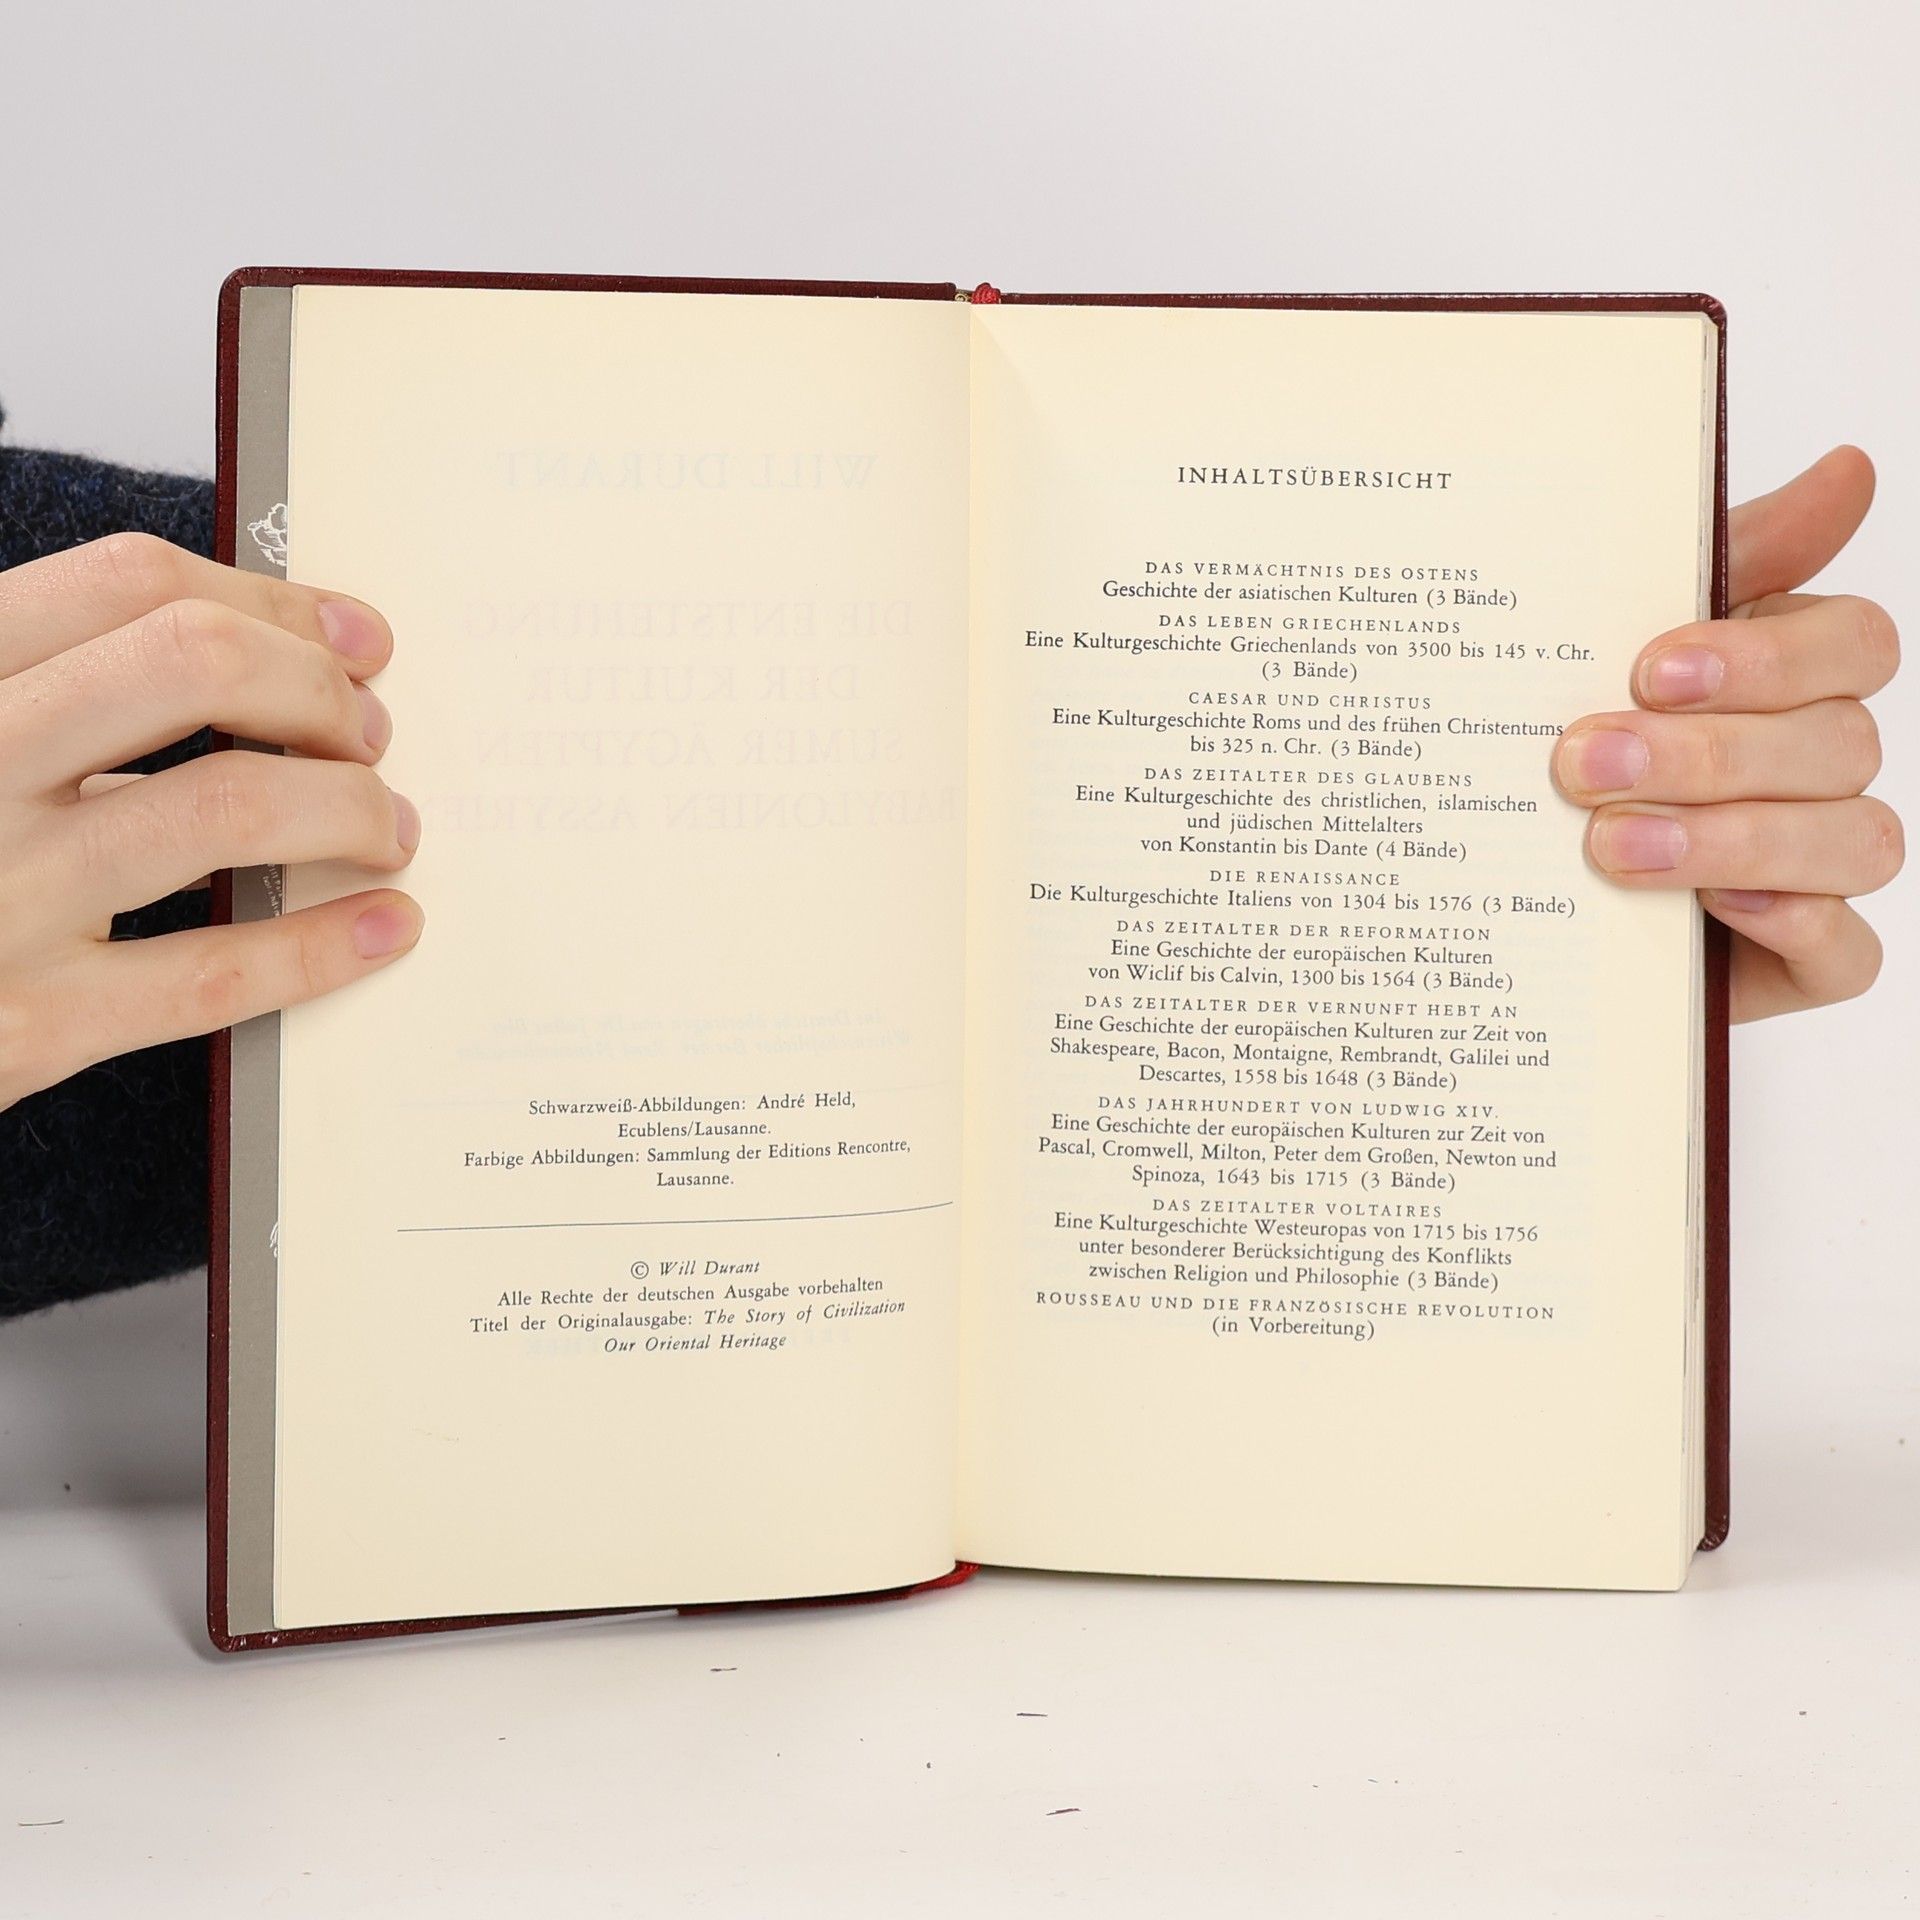 Schwarzweiß-Abbildungen: André Held,
Ecublens/Lausanne.
Farbige Abbildungen: Sammlung der Editions Rencontre,
Lausanne.
© Will Durant
Alle Rechte der deutschen Ausgabe vorbehalten
Titel der Originalausgabe: The Story of Civilization
Our Oriental Heritage
INHALTSÜBERSICHT
DAS VERMÄCHTNIS DES OSTENS
Geschichte der asiatischen Kulturen (3 Bände)
DAS LEBEN GRIECHENLANDS
Eine Kulturgeschichte Griechenlands von 3500 bis 145 v. Chr.
(3 Bände)
CAESAR UND CHRISTUS
Eine Kulturgeschichte Roms und des frühen Christentums
bis 325 n. Chr. (3 Bände)
DAS ZEITALTER DES GLAUBENS
Eine Kulturgeschichte des christlichen, islamischen
und jüdischen Mittelalters
von Konstantin bis Dante (4 Bände)
DIE RENAISSANCE
Die Kulturgeschichte Italiens von 1304 bis 1576 (3 Bände)
DAS ZEITALTER DER REFORMATION
Eine Geschichte der europäischen Kulturen
von Wiclif bis Calvin, 1300 bis 1564 (3 Bände)
DAS ZEITALTER DER VERNUNFT HEBT AN
Eine Geschichte der europäischen Kulturen zur Zeit von
Shakespeare, Bacon, Montaigne, Rembrandt, Galilei und
Descartes, 1558 bis 1648 (3 Bände)
DAS JAHRHUNDERT VON LUDWIG XIV.
Eine Geschichte der europäischen Kulturen zur Zeit von
Pascal, Cromwell, Milton, Peter dem Großen, Newton und
Spinoza, 1643 bis 1715 (3 Bände)
DAS ZEITALTER VOLTAIRES
Eine Kulturgeschichte Westeuropas von 1715 bis 1756
unter besonderer Berücksichtigung des Konflikts
zwischen Religion und Philosophie (3 Bände)
ROUSSEAU UND DIE FRANZÖSISCHE REVOLUTION
(in Vorbereitung)